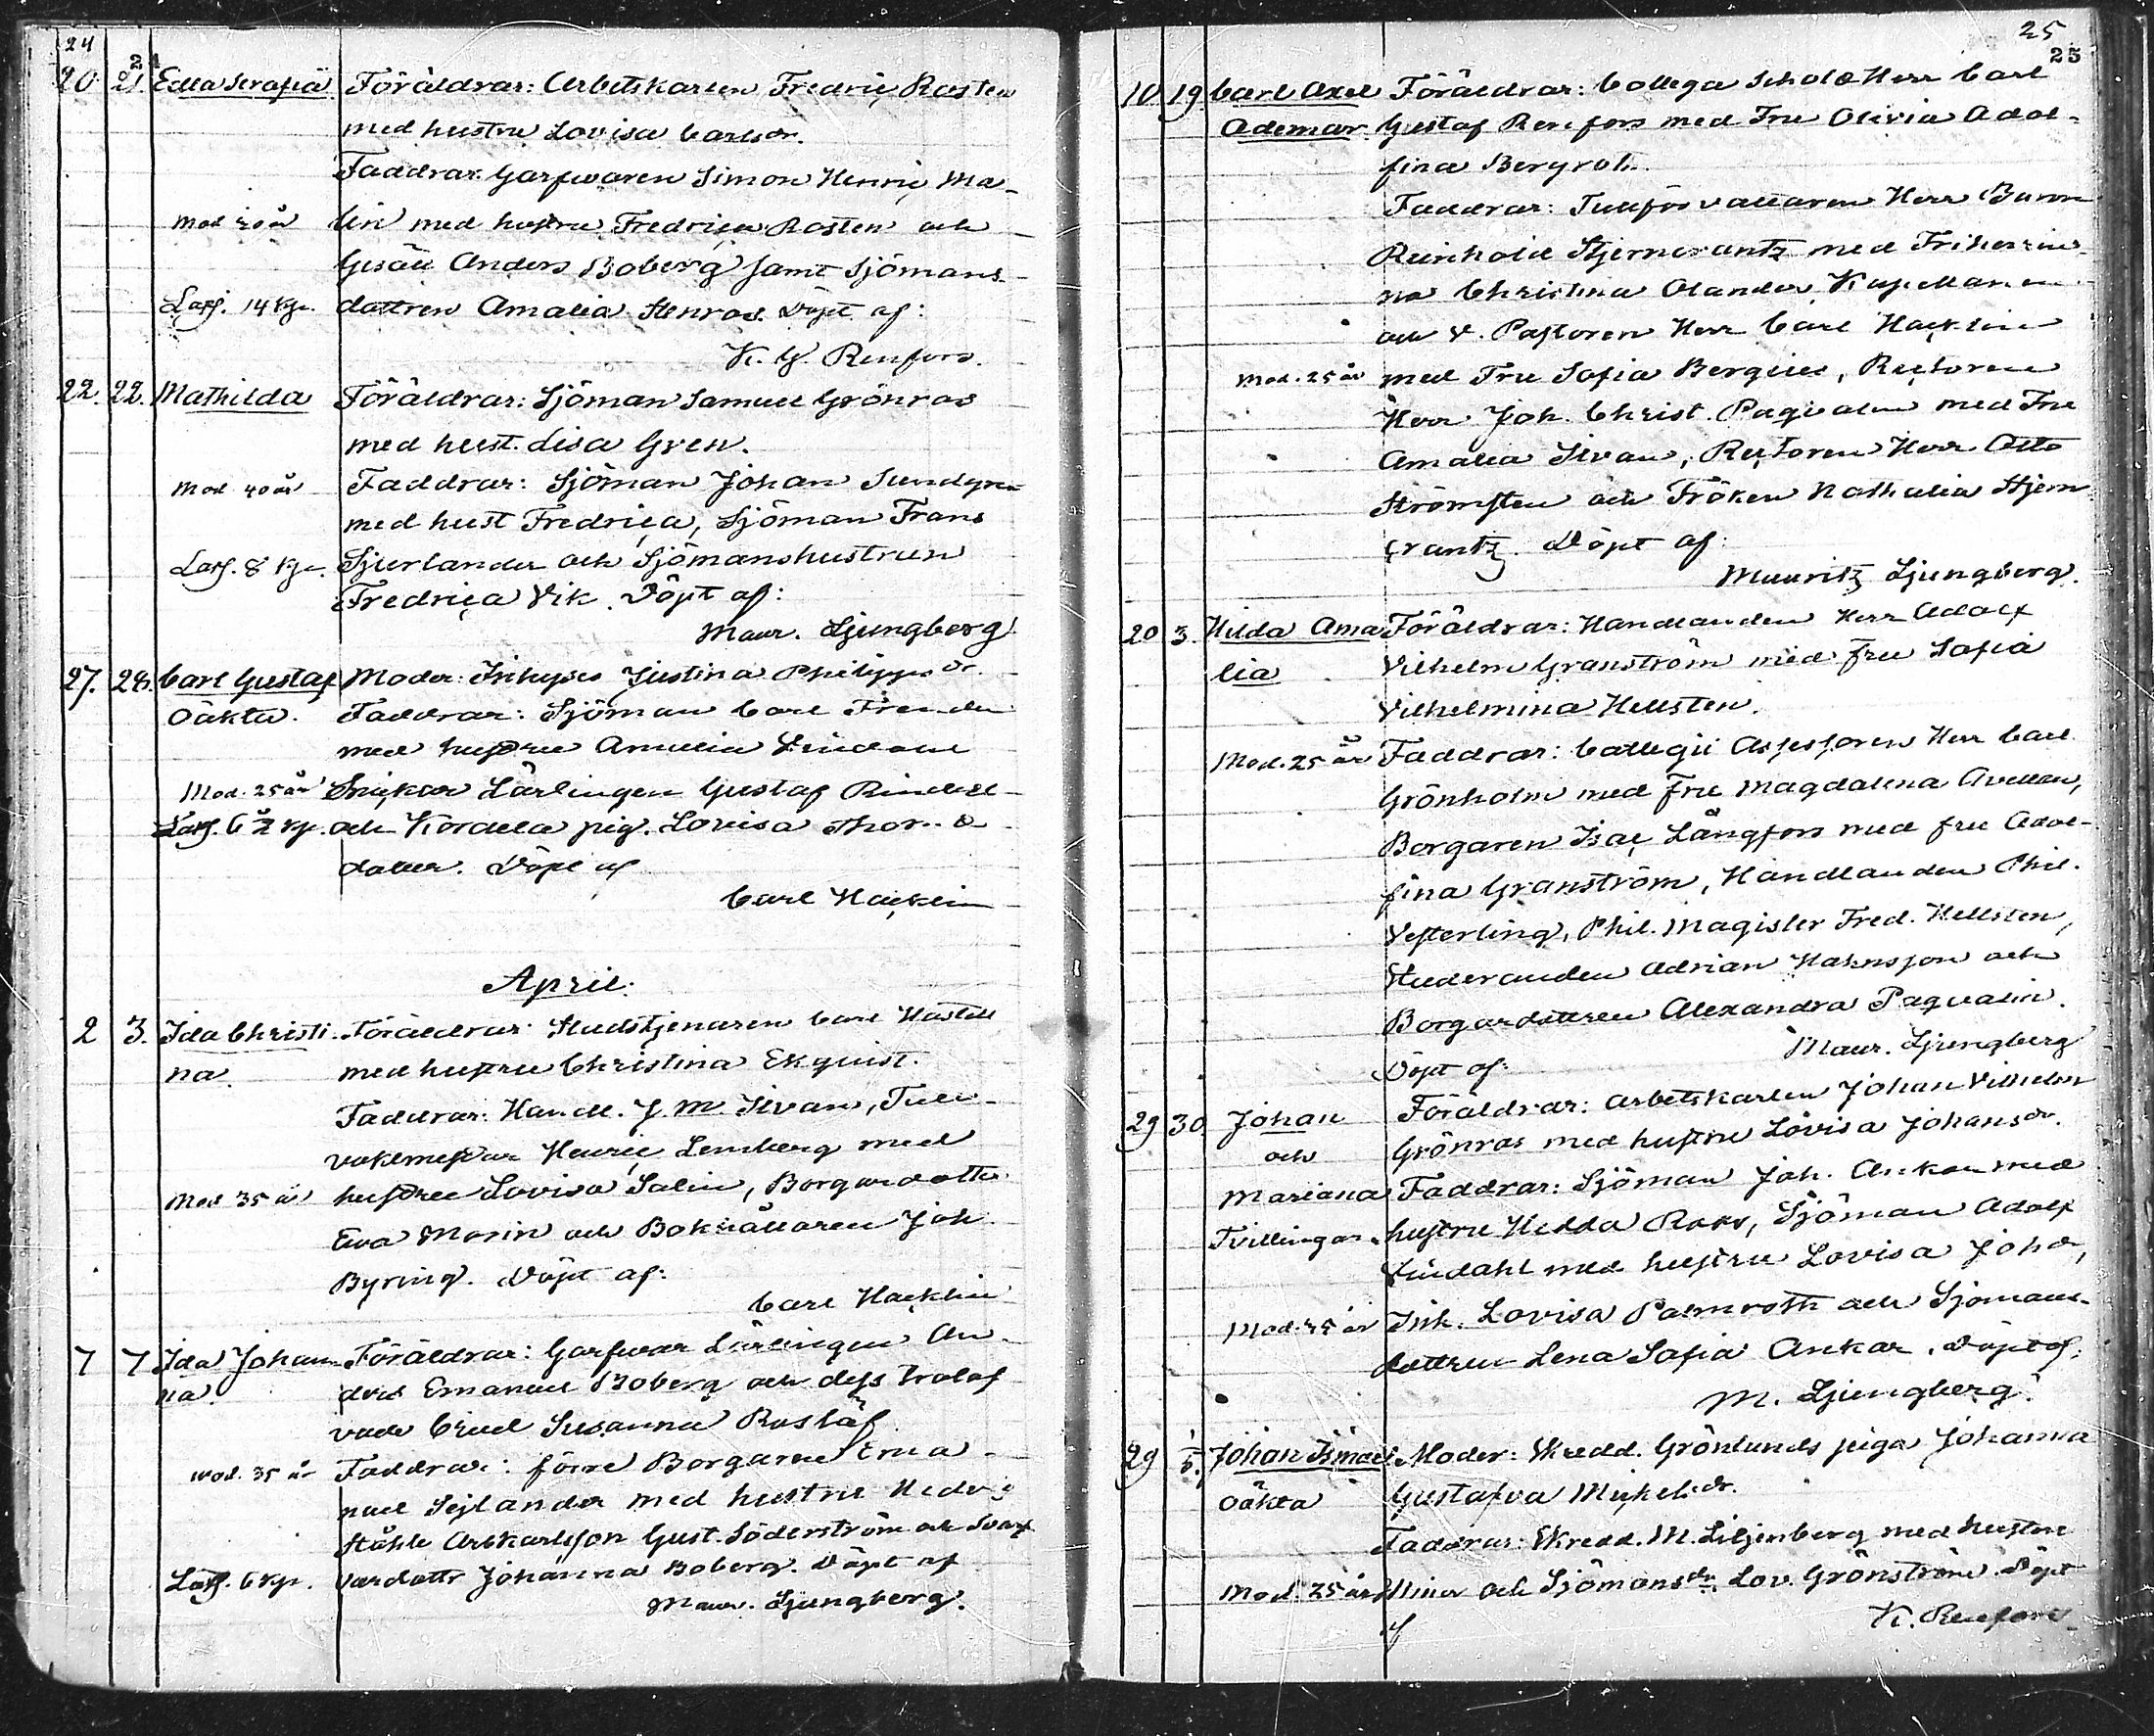 24
20. 21. Edla Serafia Föräldrar: Arbetskarlen Fredric Rosten
med hustru Lovisa Carlsdr.
Faddrar: Garfvaren Simon Henric Ma-
Mod 20 år lin med hustru Fredrica Rosten och
Gesäll Anders Boberg samt Sjömans-
Lösj. 14 kp. dottren Amalia Stenros. Döpt af:
K. G. Renfors.
22. 22. Mathilda Föräldrar: Sjöman Samuel Grönros
med hust. Lisa Gren.
Mod 40 år Faddrar: Sjöman Johan Sundgren
med hust Fredrica, Sjöman Frans
8 kp. Sjerlander och Sjömanshustrun
Fredrica Vik. Döpt af:
Maur. Ljungberg
27. 28. Carl Gustaf Moder: Justina Philippsdr.
Oäkta. Faddrar: Sjöman Carl
med hustru Amalia
Mod. 25 år Snickar Lärlingen Gustaf Rindell
6 ½ kp. och pig. Lovisa
Döpt af
Carl Hacklin
April:
2 3. Ida Christi- Föräldrar: Stadstjenaren Carl
na. med hustru Christina Ekquist.
Faddrar: Handl. J. M. Sivan, Tull-
Henric Lemberg med
Mod 35 år hustru Lovisa Salin, Borgaredotter
Eva Morin och Bokhållaren Joh.
Byring. Döpt af:
Carl Hacklin
7 7 Ida Johan- Föräldrar: Garfvar Lärlingen An-
na. ders Emanuel Boberg och dess trolof-
vade brud Susanna
Mod. 35 år Faddrar: förre Borgaren Ema-
nuel Sejlander med hustru Hedvig
Ståhle Arbkarlsson Gust. Söderström och
6 kp. Johanna Boberg. Döpt af
Maur. Ljungberg.
25
25
10 19. Carl Axel Föräldrar: Collega Scholæ Herr Carl
Ademar Gustaf Renfors med Fru Olivia Adol-
fina Bergroth.
Faddrar: Tullförvaltaren Herr Baron
Reinhold Stjerncrantz med Friherrin-
na Christina Olander, Kapellanen
och V. Pastoren Herr Carl Hacklin
Mod. 25 år med Fru Sofia Bergius, Rectoren
Herr Joh. Christ. Paqvalin med Fru
Amalia Sivan, Rectoren Herr Otto
Strömsten och Fröken Nathalia Stjern
crantz. Döpt af:
Mauritz Ljungberg.
20 3. Hilda Ama- Föräldrar: Handlanden Herr Adolf
lia Vilhelm Granström med fru Sofia
Vilhelmina Hellsten.
Mod. 25 år Faddrar: Collegii Assessoren Herr Carl
Grönholm med Fru Magdalena Avellan,
Borgaren Isac Långfors med fru Adol-
fina Granström, Handlanden Phil.
Vesterling, Phil. Magister Fred. Hellsten,
Studeranden Adrian Hahnsson och
Borgardottren Alexandra Paqvalin.
Döpt af: Maur. Ljungberg
29 30. Johan Föräldrar: Arbetskarlen Johan Vilhelm
och Grönros med hustru Lovisa Johansdr.
Mariana Faddrar: Sjöman Joh. Ankar med
Tvillingar. hustru Hedda Roos, Sjöman Adolf
Lindahl med hustru Lovisa
Mod. 45 år Inh. Lovisa Palmroth och Sjömans-
dottren Lena Sofia Ankar. Döpt af:
M. Ljungberg.
29 1/5. Johan Ismael Moder: Skredd. Grönlunds piga Johanna
Oäkta Gustafva Mickelsdr.
Faddrar: Skredd. M. Liljenberg med hustru
Mod. 25 år Mina och Sjömansdr. Lov. Grönström. Döpt
af K. Renfors